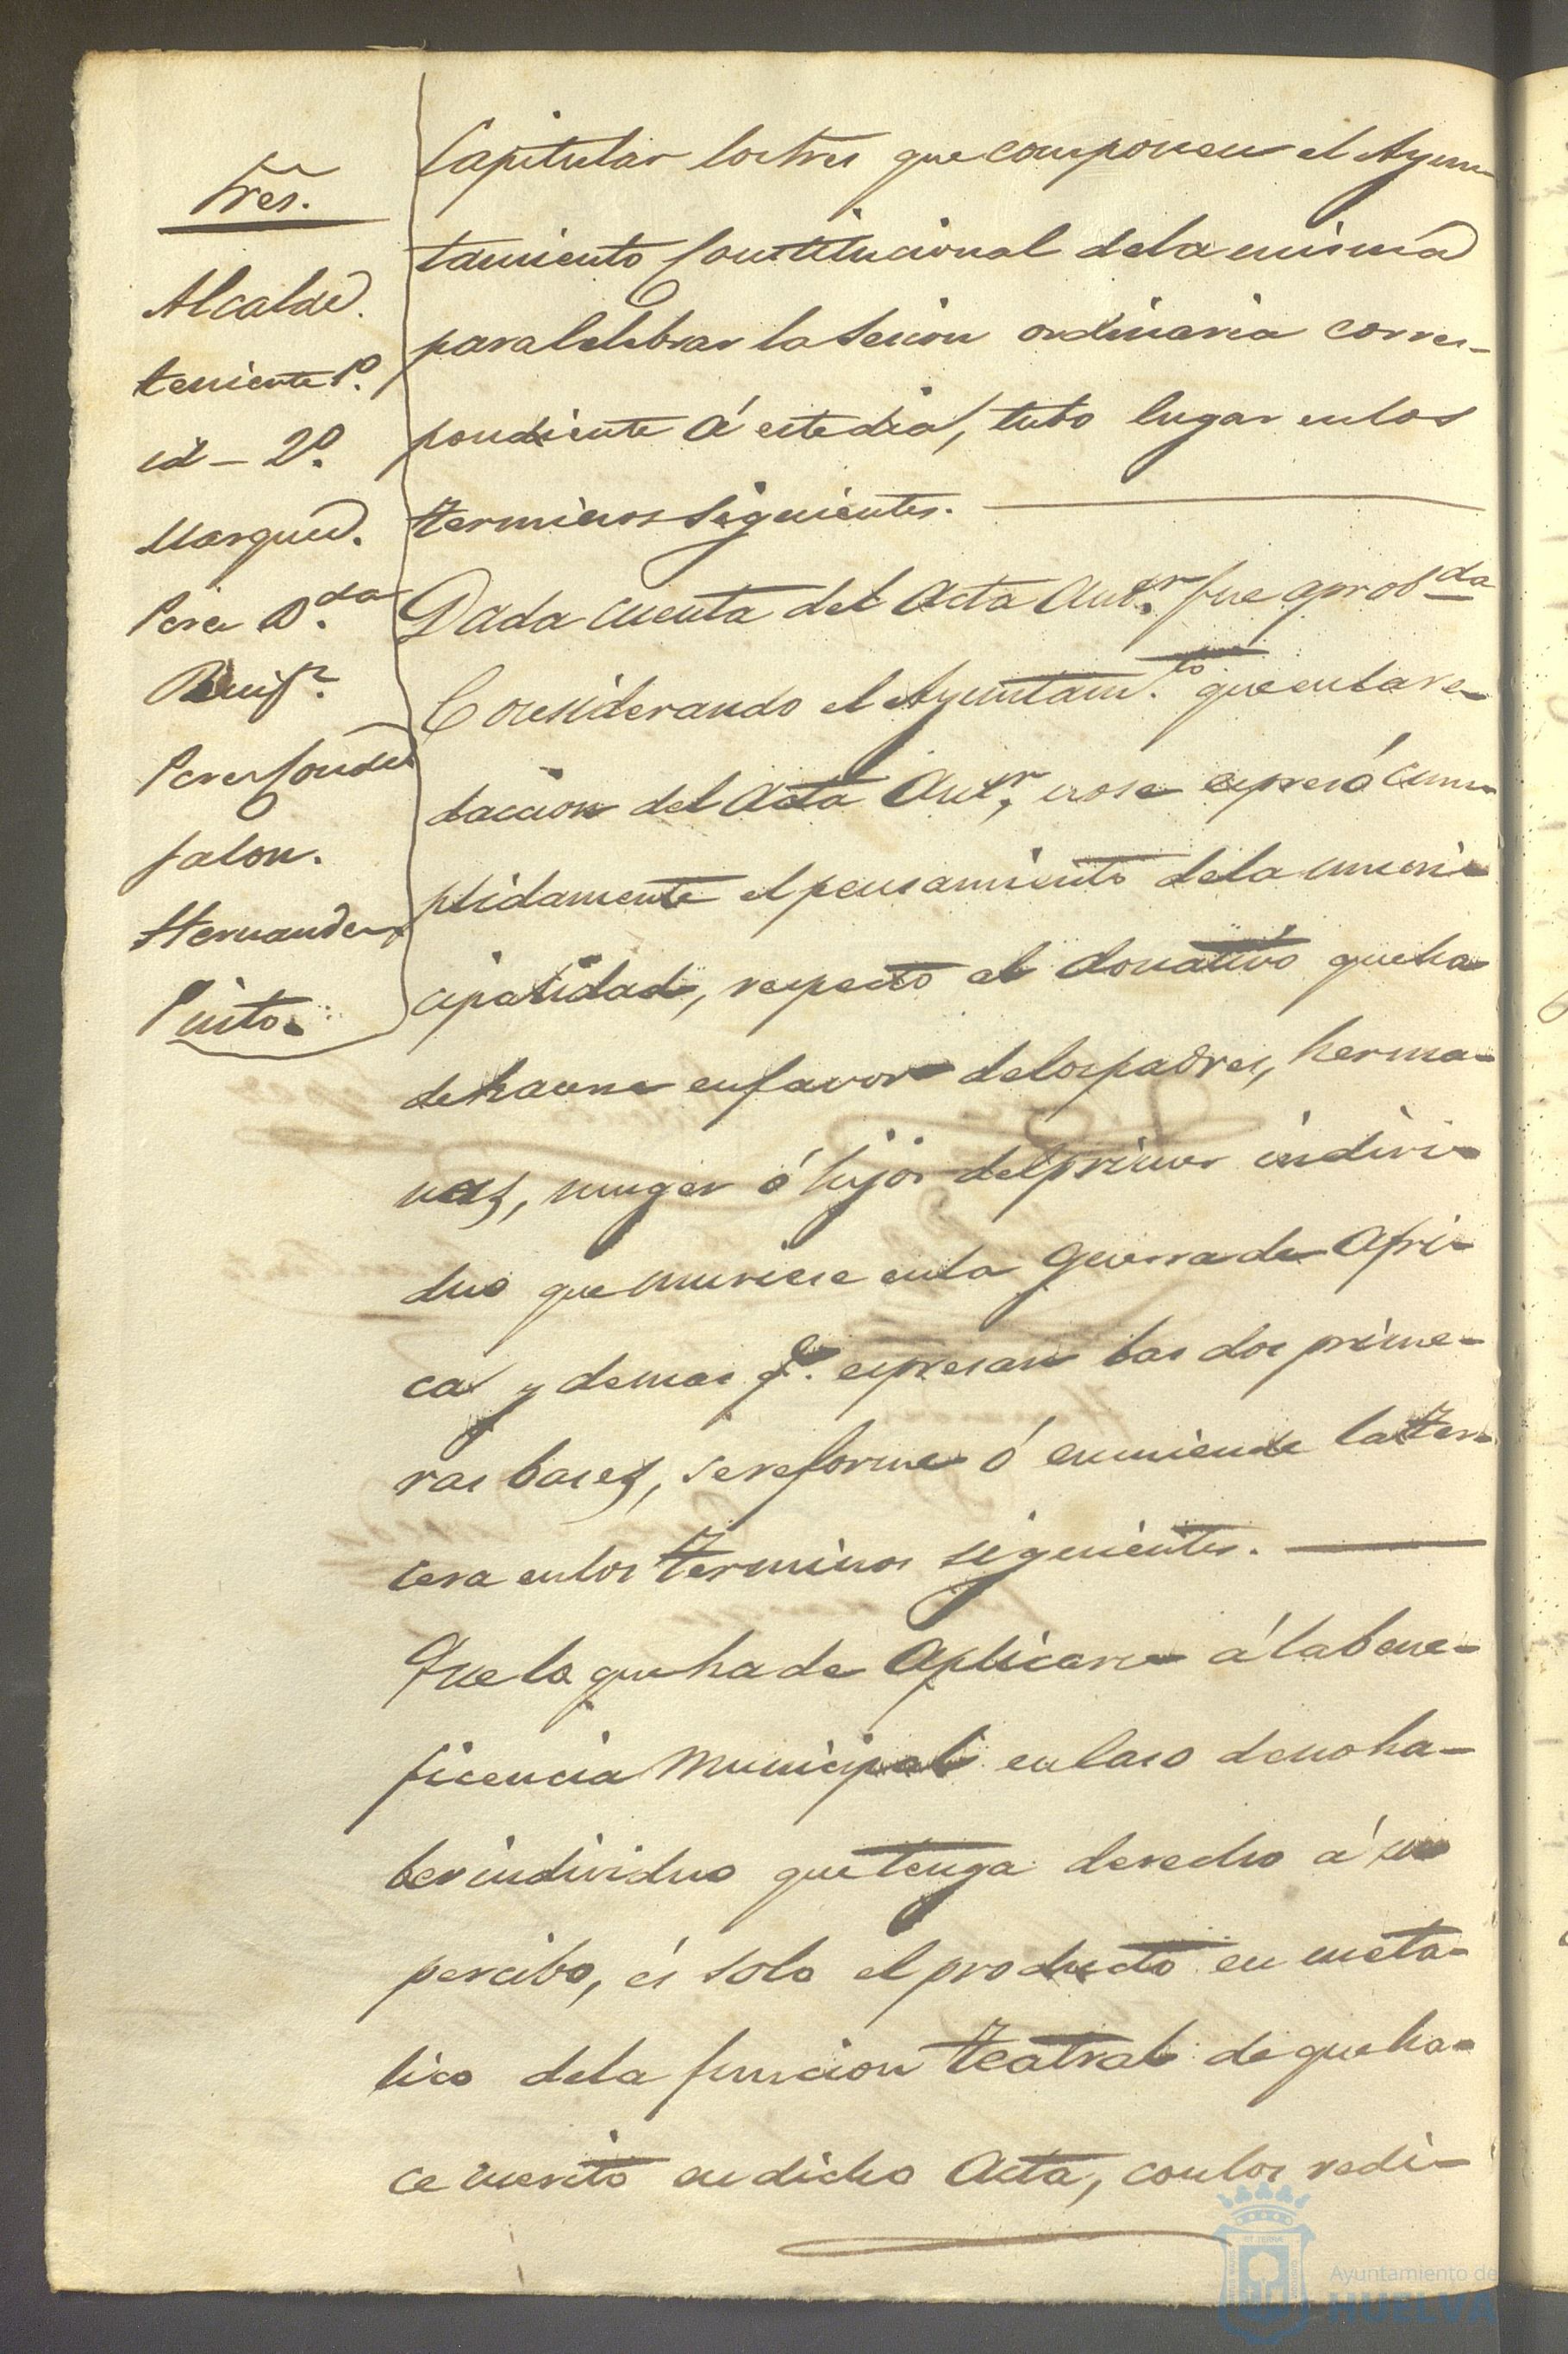 Sres.
Alcalde.
teniente 1º.
id - 2º.
Marques.
Perez D.da
Perez Conde
jalon.
Hernandez
Pinto.
Capitular los Sres que componen el Ayun-
tamiento Constitucional dela misma
para Celebrar la Sesion ordinaria corres-
pondiente á este dia, tubo lugar en los
terminos Siguientes.
Dada cuenta del Acta Antr. fue aprobda
Considerando el Ayuntam.to que en la re-
daccion del Acta Antr, no se espresó cum-
plidamente el pensamiento dela muni-
cipalidad, respecto al donativo que ha
de hacerse en favor delos padres, herma-
nos, muger ó hijos del primer indivi-
duo que muriese en la Guerra de Afri-
ca y demas q.e espresan las dos prime-
ras bases, se reforme ó enmiende la ter-
cera en los terminos siguientes.
Que lo que ha de Aplicarse á la bene-
ficencia Municipal en Caso de no ha-
ber individuo que tenga derecho á su
percibo, és solo el producto en meta-
lico dela funcion teatral de que ha-
ce merito en dicho Acta, con los redi-
Ayuntamiento de
HUELVA